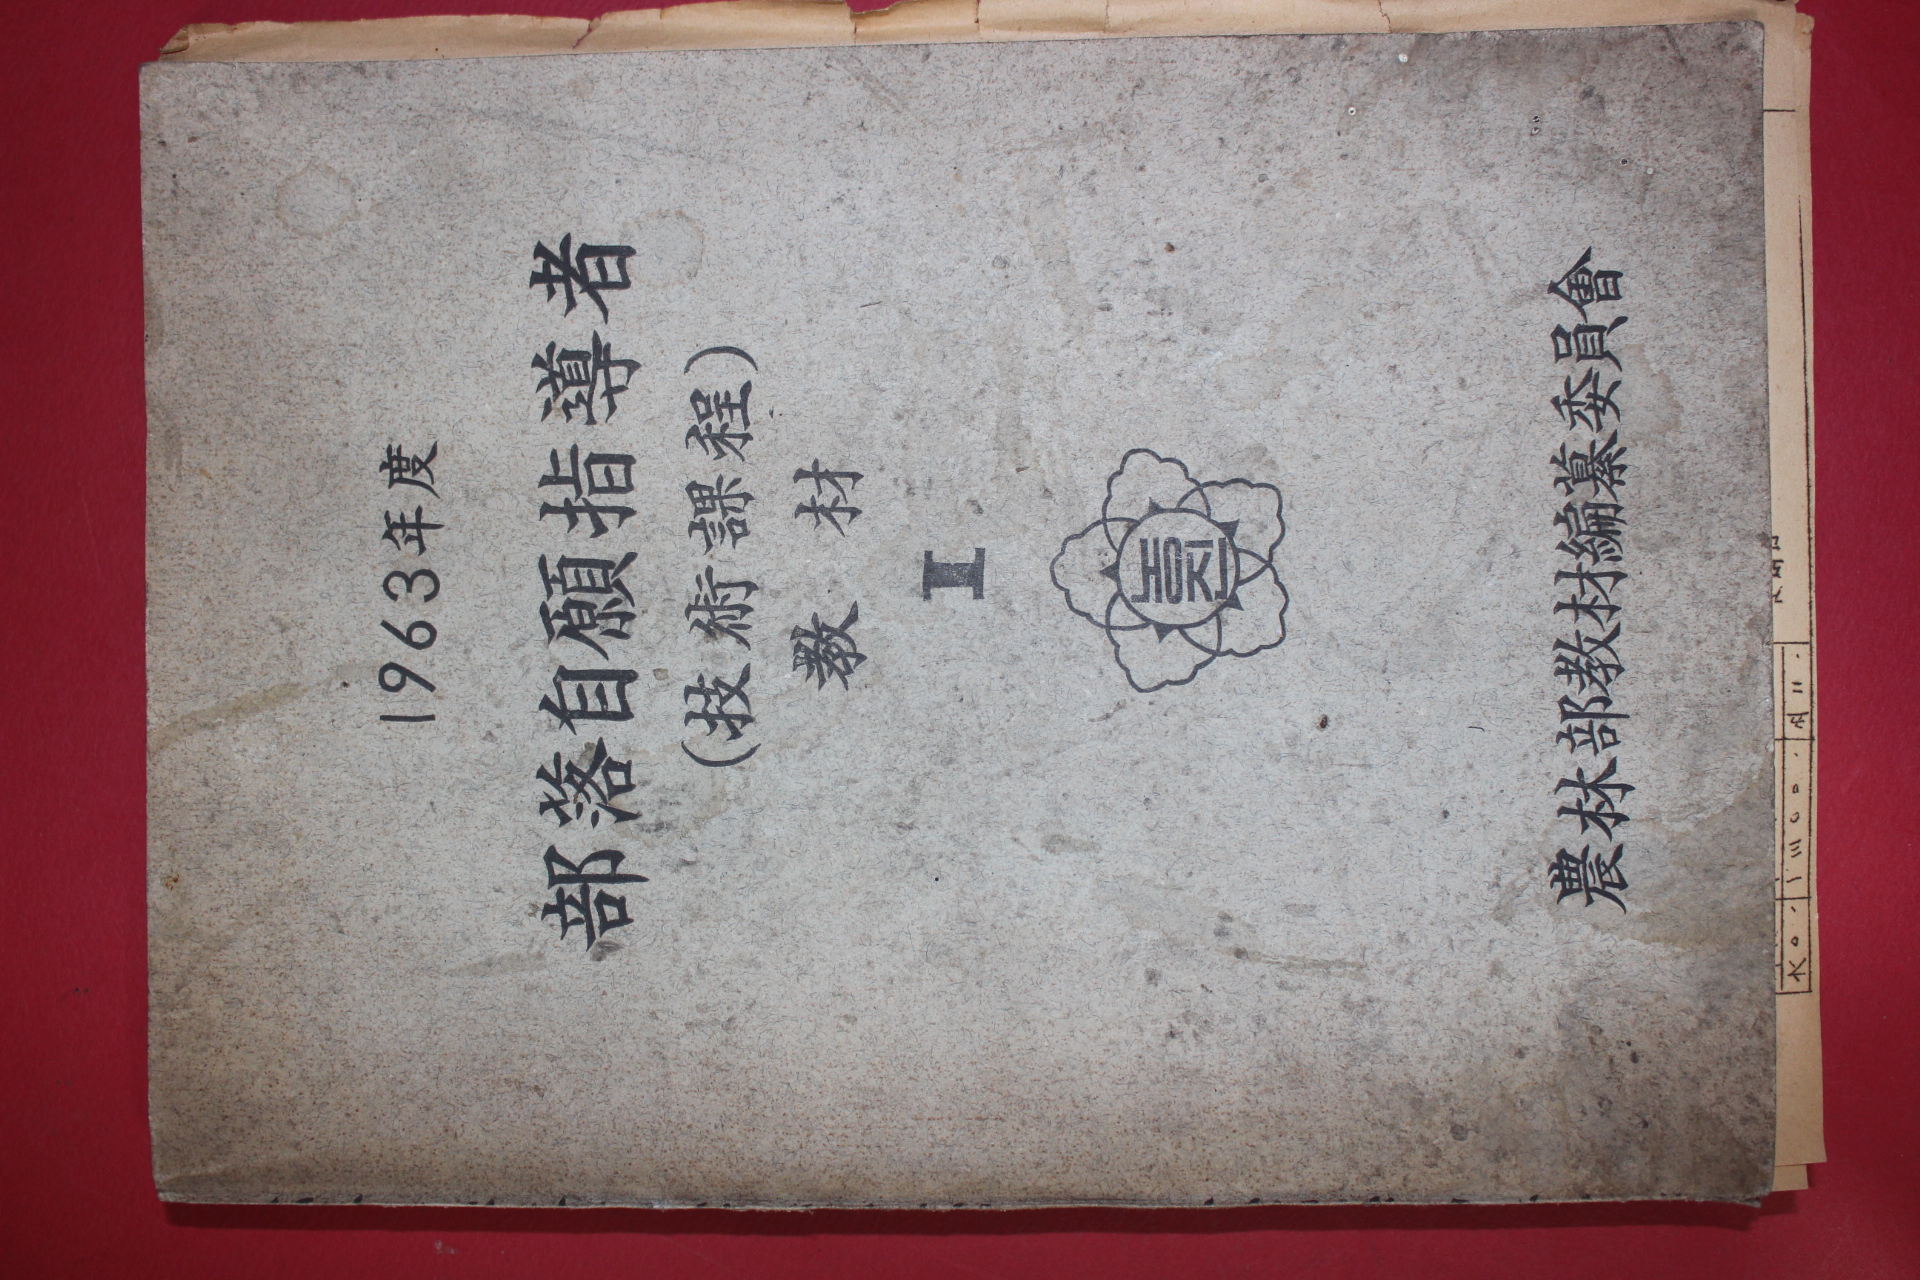 1963年度
部落自願指導者
(技術課程)
教材
I
농진
農林部教材編纂委員會